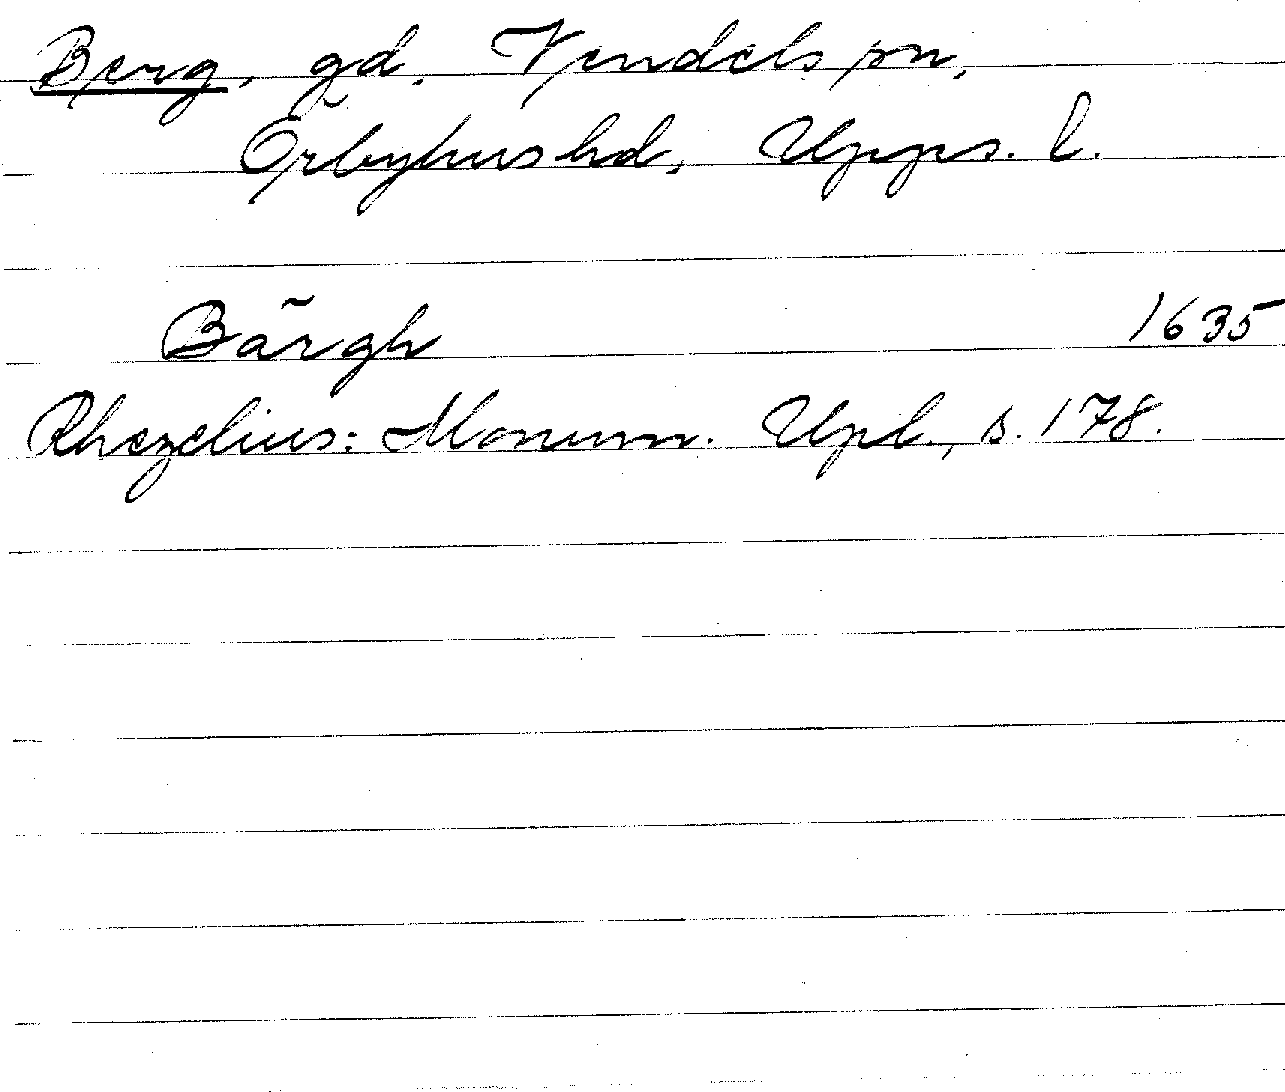 Berg, gd. Vendels sn,
Örbyhus hd, Upps. l.
Bärgh 1635
Rhezelius: Monum. Upl., s. 178.